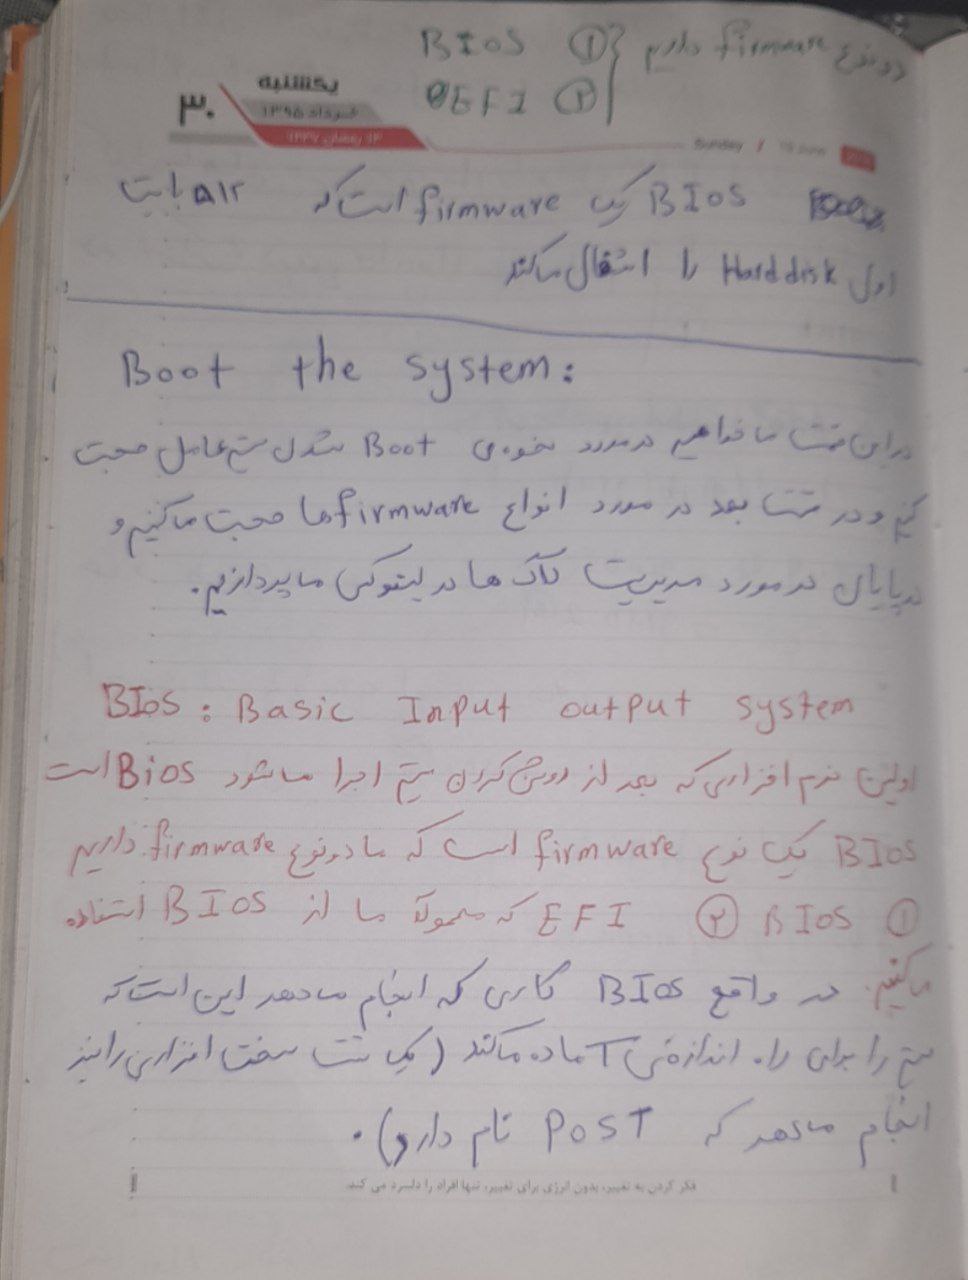 دو نوع firmware داریم { ① BIOS
② EFI
یکشنبه
۳۰
خرداد ۱۳۹۵
۱۳ رمضان ۱۴۳۷
Sunday / 19 June
BIOS یک firmware است که ۵۱۲ بایت
اول Hard disk را انتقال میکند
Boot the system:
در این قسمت ما خواهیم در مورد نحوه‌ی Boot شدن سیستم عامل صحبت
کنیم و در قسمت بعد در مورد انواع firmware ها صحبت میکنیم و
در پایان در مورد مدیریت لاگ ها در لینوکس می پردازیم.
BIOS : Basic Input output system
اولین نرم افزاری که بعد از روشن کردن سیستم اجرا میشود Bios است
BIOS یک نوع firmware است که ما دو نوع firmware داریم
① BIOS ② EFI که معمولاً ما از BIOS استفاده
میکنیم. در واقع BIOS کاری که انجام میدهد این است که
سیستم را برای راه اندازی آماده میکند (یک تست سخت افزاری را نیز
انجام میدهد که POST نام دارد).
فکر کردن به تغییر، بدون انرژی برای تغییر، تنها افراد را دلسرد می کند.